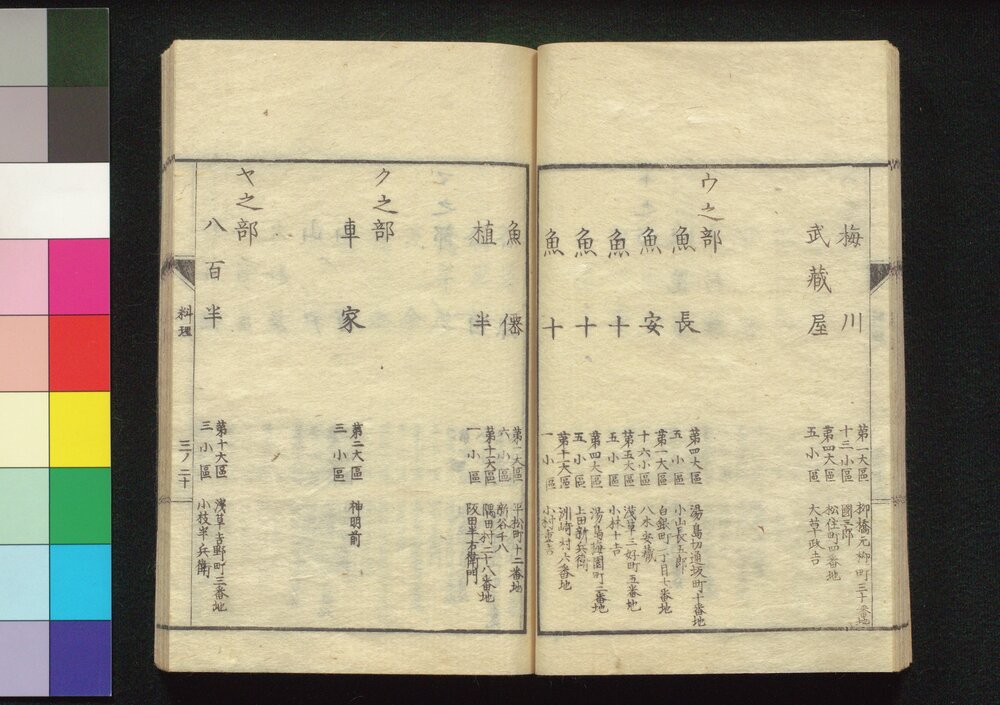 梅川 第一大區 柳橋元柳町三十番地
十三小區 國三郎
武藏屋 第四大區 松住町四番地
五小區 大草政吉
ウ之部
魚長 第四大區 湯島切通坂町十番地
五小區 小山長五郎
魚安 第一大區 白銀町一丁目七番地
十六小區 八木安藏
魚十 第五大區 淺草三好町五番地
五小區 小林十吉
魚十 第四大區 湯島梅園町二番地
五小區 上田新兵衛
魚十 第十一大區 洲崎村六番地
一小區 小村重吉
魚 第一大區 平松町十二番地
六小區 新谷千八
植半 第十一大區 隅田村二十八番地
一小區 阪田半右衛門
ク之部
車家 第二大區 神明前
三小區
ヤ之部
八百半 第十大區 淺草吉野町三番地
三小區 小枝半兵衛
料理 三ノ二十